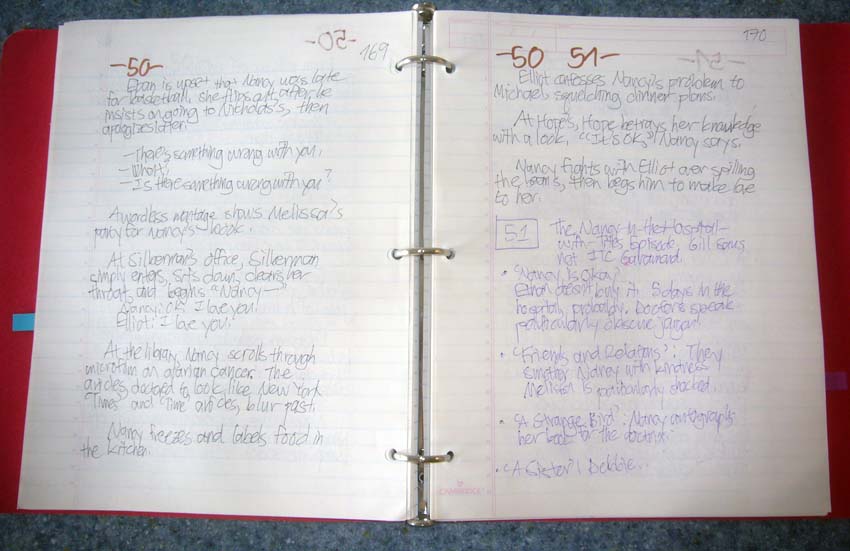 169
-50-
Ethan is upset that Nancy was late
for basketball. She flips out after he
insists on going to Nicholas's, then
apologizes later.
-There's something wrong with you.
-What?
-Is there something wrong with you?
A wordless montage shows Melissa's
party for Nancy's book.
At Silverman's office, Silverman
simply enters, sits down, clears her
throat, and begins "Nancy—"
Nancy: OK. I love you.
Elliot: I love you.
At the library, Nancy scrolls through
microfilm on ovarian cancer. The
articles, doctored to look like New York
"Times" and "Time" articles, blur past.
Nancy freezes and labels food in
the kitchen.
170
-50 51-
Elliot confesses Nancy's problem to
Michael, squelching dinner plans.
At Hope's, Hope betrays her knowledge
with a look. "It's OK," Nancy says.
Nancy fights with Elliot over spilling
the beans, then begs him to make love
to her.
51 The Nancy-in-the-Hospital-
with-Titles Episode. Bill
not ITC
• "Nancy Is Okay"
Ethan doesn't buy it. 5 days in the
hospital, probably. Doctors speak
particularly obscure jargon.
• "Friends and Relations": They
smother Nancy with kindness.
Melissa is particularly shocked.
• "A Strange Bird": Nancy autographs
her book for the doctor.
• "A Sister": Debbie.
CAMBRIDGE